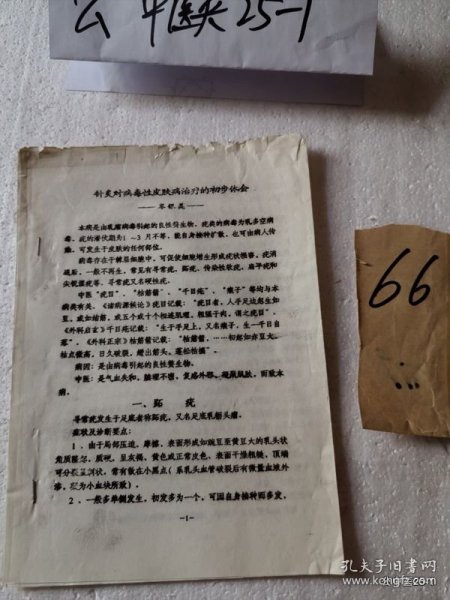 云 中医夹25-1
针灸对病毒性皮肤病治疗的初步体会
本病是由乳瘤病毒引起的良性赘生物，疣的病毒为乳多空病
毒。疣的潜伏期为1－3月不等，能自身接种扩散，也可由病人传
染，可发生于皮肤的任何部位。
病毒存在于棘层细胞中，可促使细胞增生形成疣状损害。疣消
退后，一般不再生，常见有寻常疣、跖疣、传染性软疣、扁平疣和
尖锐湿疣等，寻常疣又名硬性疣。
中医“疣目”、“枯筋箭”、“千日疮”、“瘊子”等均与本
病类有关。《诸病源候论》疣目记载：“疣目者，人手足边忽生如
豆，或如结筋，或五个或十个相连肌里，粗强于肉，谓之疣目”。
《外科启玄》千日疮记载：“生于手足上，又名瘊子，生一千日自
落”。《外科正宗》枯筋箭记载：“枯筋箭，……初起如赤豆大，
枯点微高，日久破裂，钻出筋头，蓬松枯槁”。
病因：是由病毒引起的良性赘生物。
中医：是气血失和，腠理不密，复感外邪，凝聚肌肤，而致本
病。
一、跖 疣
寻常疣发生于足底者称跖疣，又名足底乳头瘤。
症状及诊断要点：
1、由于局部压迫，摩擦，表面形成如豌豆至黄豆大的乳头状
角质隆起，质硬，呈灰褐、黄色或正常皮色，表面干燥粗糙，顶端
可分裂呈刺状，常有散在小黑点（系乳头血管破裂后有微量血液外
渗，凝为小血块所致）。
2、一般多单侧发生，初发多为一个，可因自身接种而多发，
—1—
66
孔夫子旧书网
www.kongfz.com